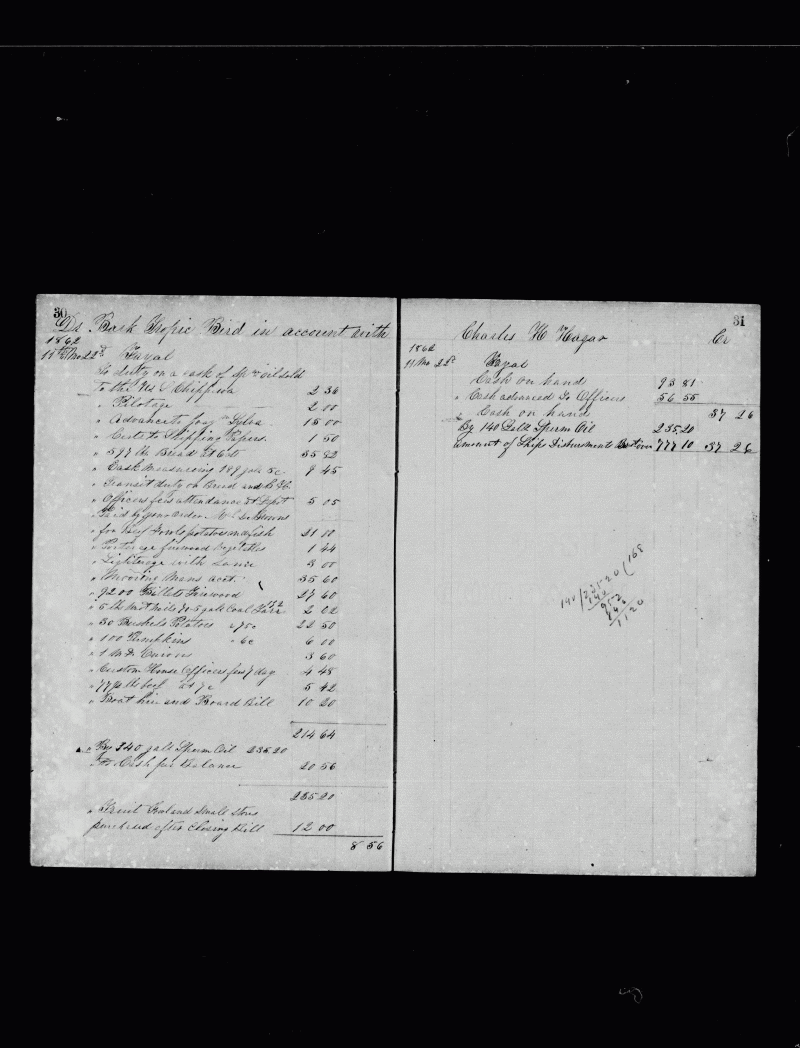 30
Dr Bark Tropic Bird in account with
1862
11th Mo 22d Fayal
To duty on a cask of Spm oil sold
to the US Chippewa 2 36
" Pilotage 2 00
" Advance to Sylva 15 00
" Certe to Shipping Papers 1 50
" 597 lb Bread at 6 cts 35 82
" Cask measuring 189 galls 5c 9 45
" Transit duty on Bread and
" Officers fees attendance at Depot 5 05
" Paid by your order
for Beef Fowls potatoes and fish 21 00
" Porterage firewood Vegetables 1 44
" Lighterage with Same 3 00
" Mooring Mans acct 35 60
" 9200 Billets Firewood 27 60
" 5 lb Nails & 5 galls Coal Tar 2 02
" 30 Bushels Potatoes " 75c 22 50
" 100 Pumpkins " 6c 6 00
" Onions 3 60
" Custom House Officers fees 7 day 4 48
" 77½ lb beef at 7c 5 42
" Boat hire and Board Bill 10 20
214 64
" By 140 galls Sperm Oil 235 20
To Cash for Balance 20 56
235 20
" Fruit and Small Stores
purchased after closing bill 12 00
8 56
31
Charles H Hagar Cr
1862
11 Mo 22d Fayal
Cash on hand 93 81
" Cash advanced to Officers 56 55
" Cash on hand 37 26
By 140 Galls Sperm Oil 235 20
amount of Ships Disbursments 777 10 37 26
140/235 20(168
140
952
840
1120